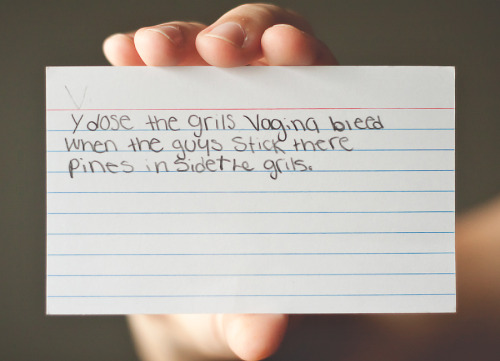 V.
Y dose the grils Vagina bleed
when the guys Stick there
pines in Sidethe grils.